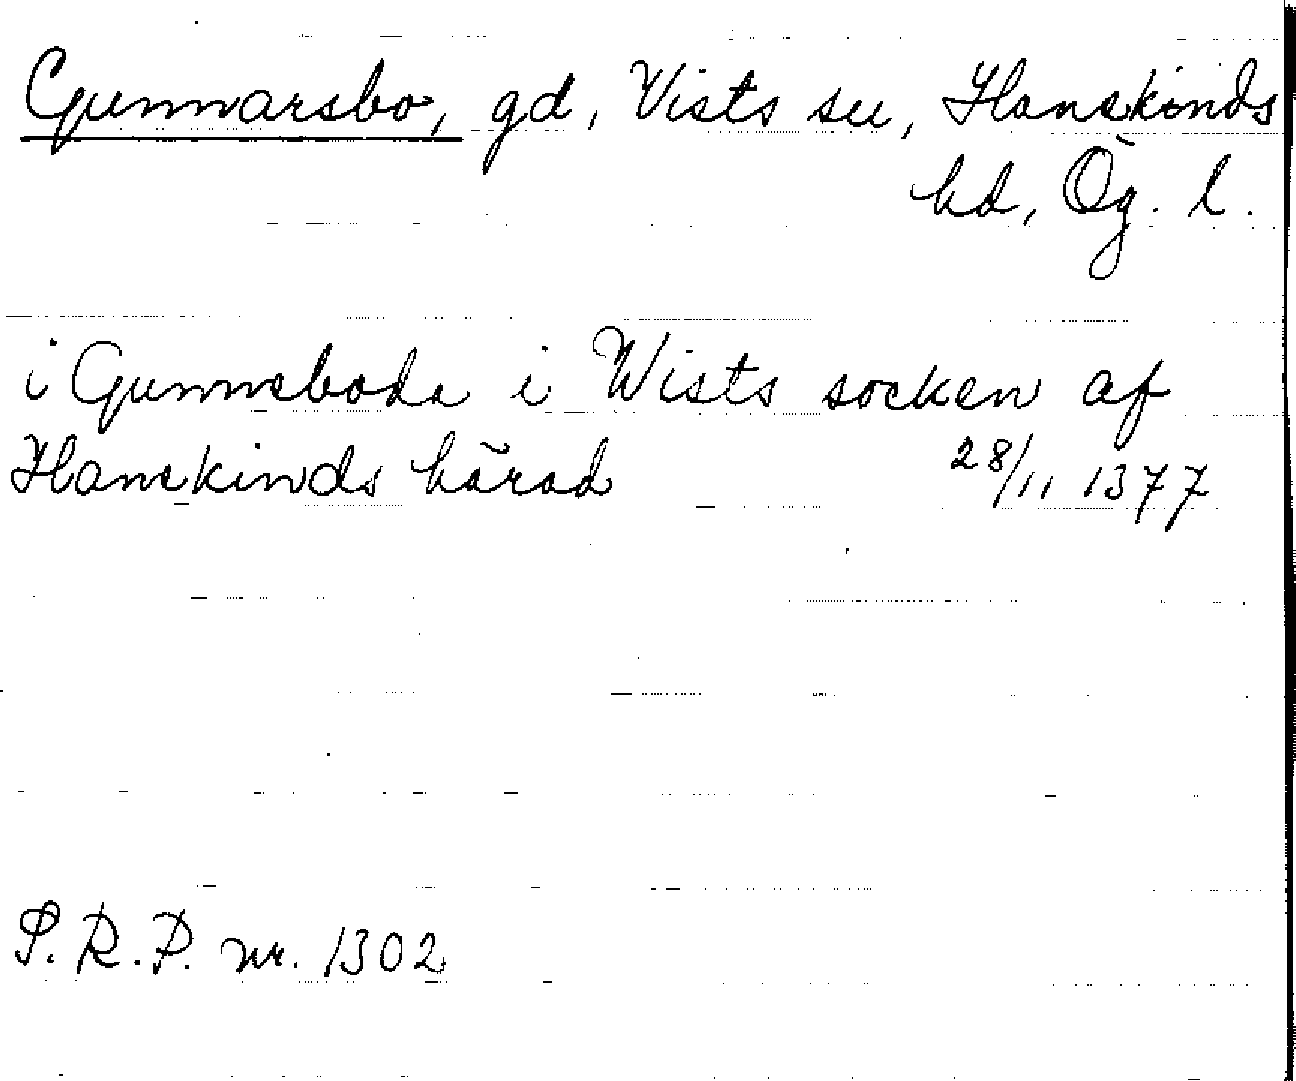 Gunnarsbo, gd, Vists sn, Hanekinds
hd, Ög. l.
i Gunnsboda i Wists socken af
Hanekinds härad 28/11 1377
S.R.P. nr. 1302